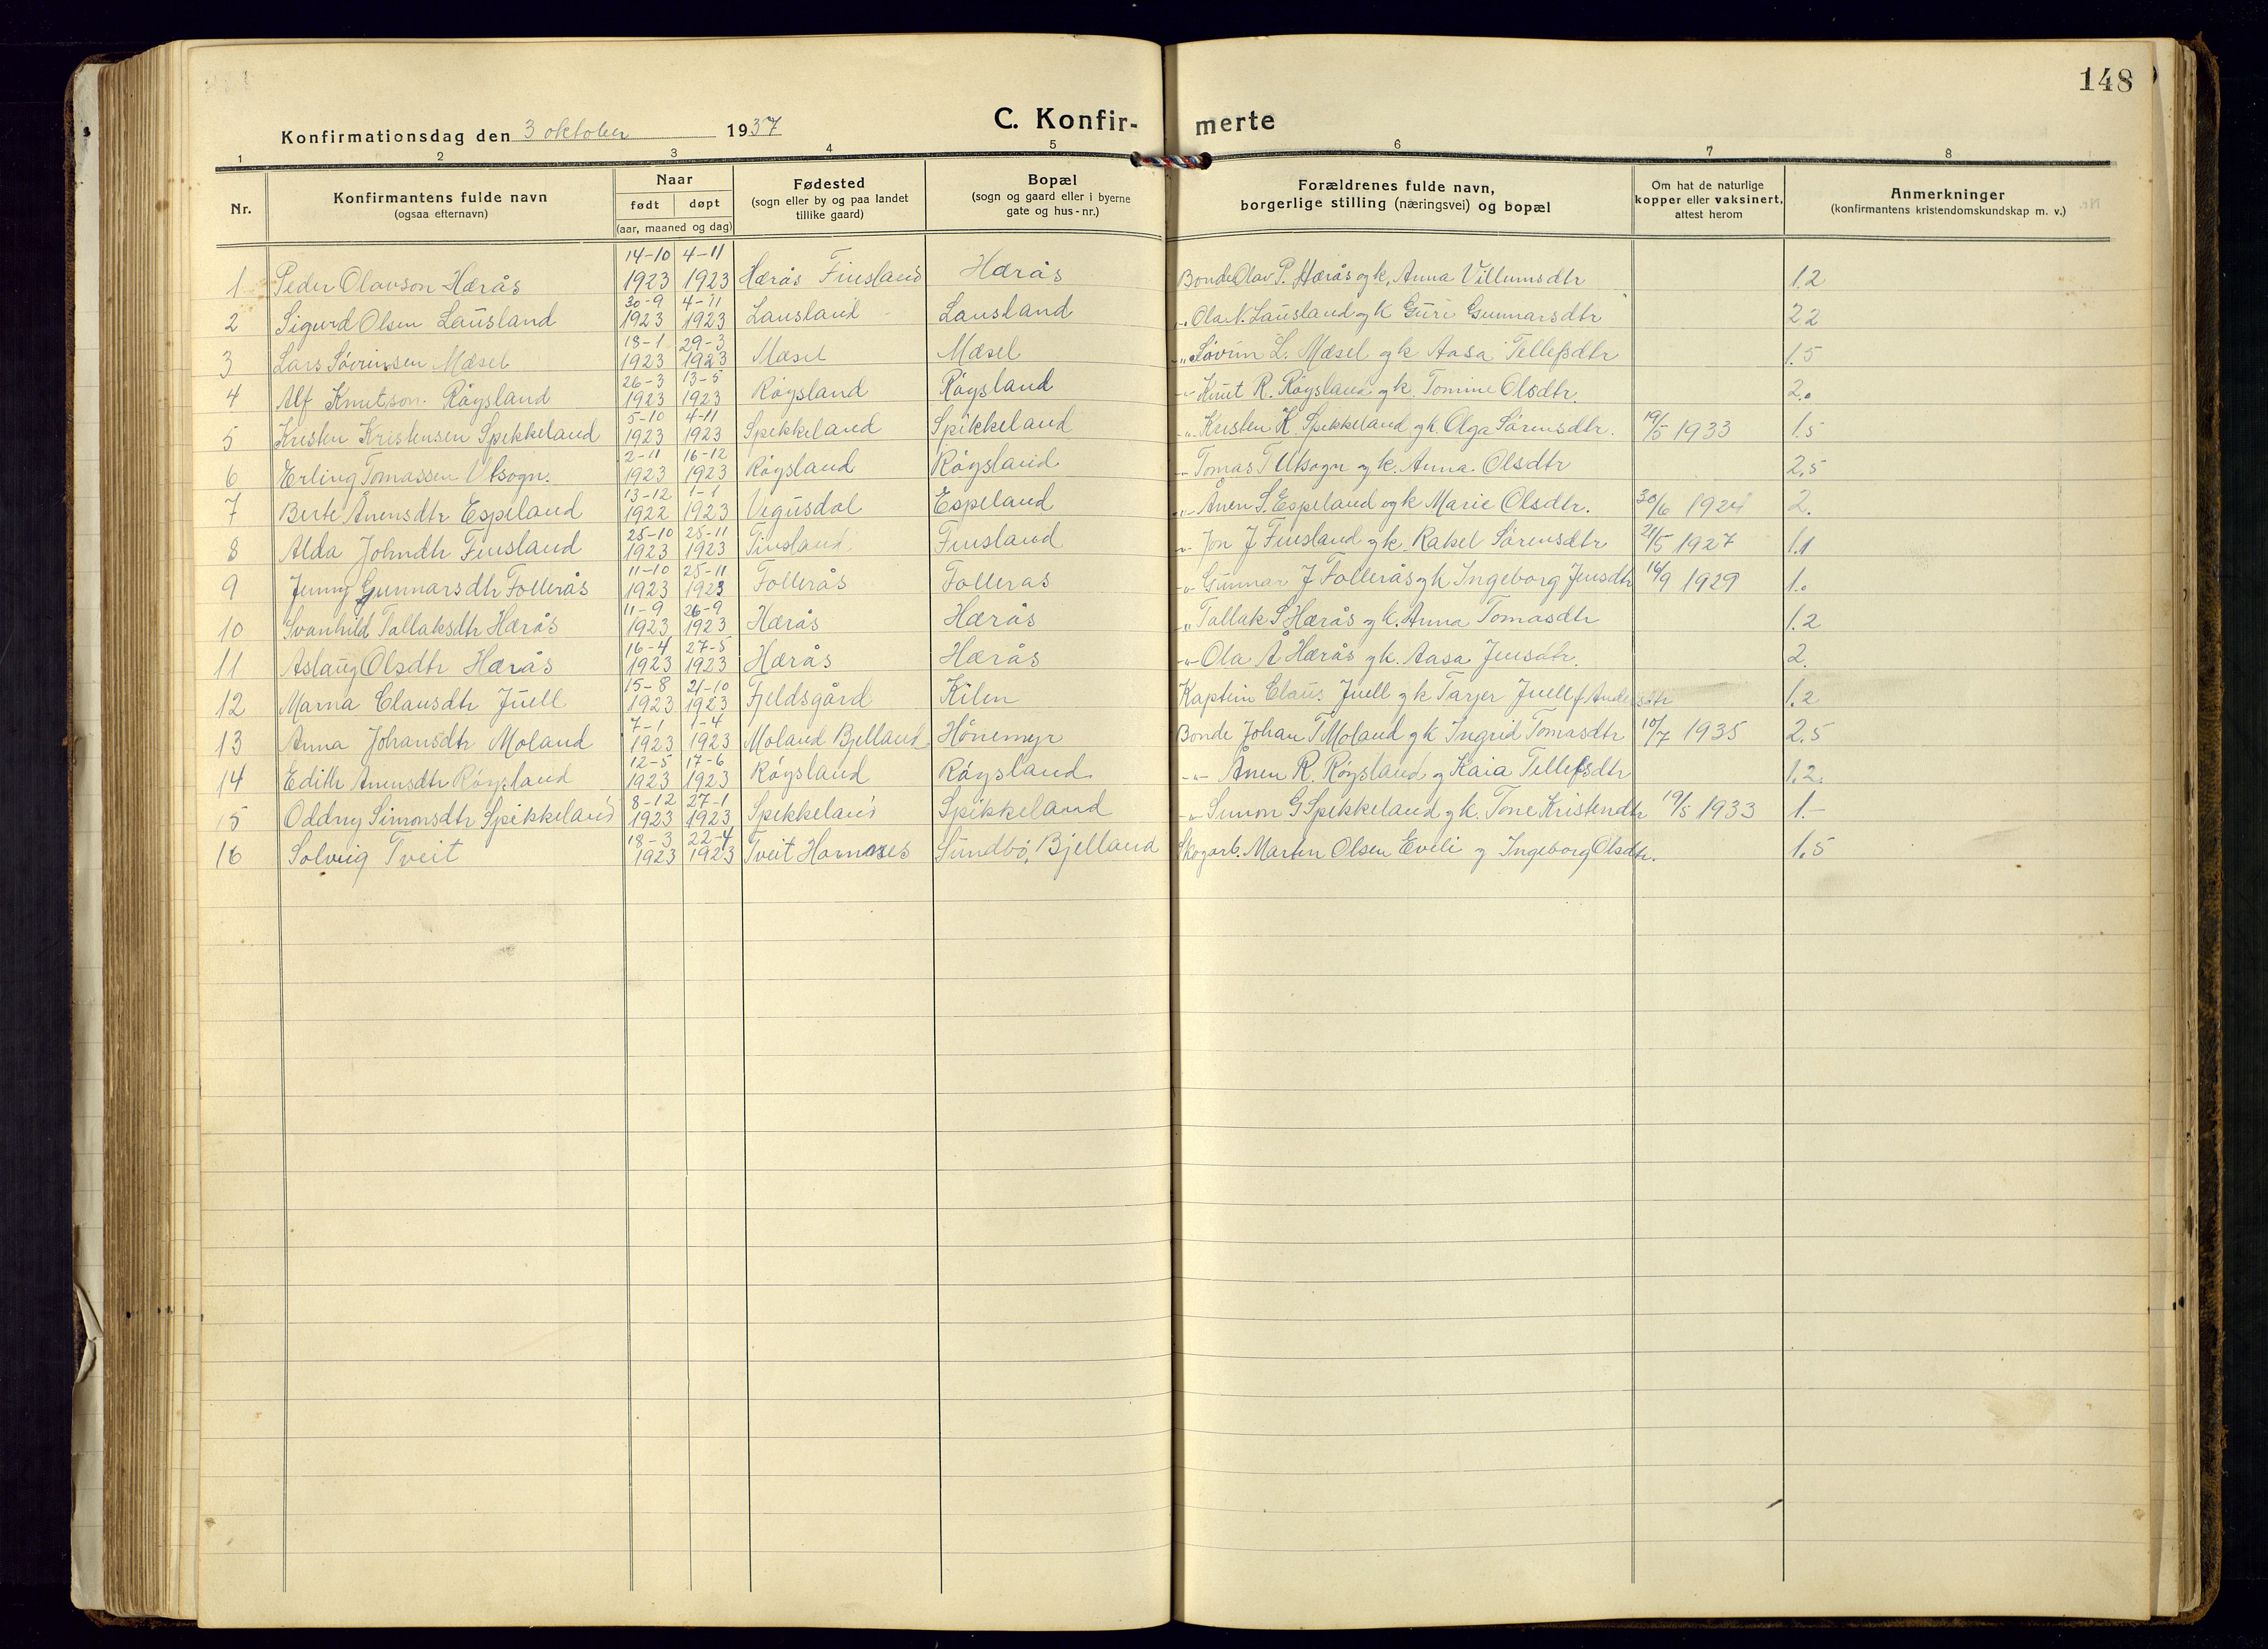 148
Konfirmationsdag den 3 oktober 1937
C. Konfir- merte
1 2 3 4 5 6 7 8
Nr.
Konfirmantens fulde navn
(ogsaa efternavn)
Naar
født døpt
(aar, maaned og dag)
Fødested
(sogn eller by og paa landet
tillike gaard)
Bopæl
(sogn og gaard eller i byerne
gate og hus-nr.)
Forældrenes fulde navn,
borgerlige stilling (næringsvei) og bopæl
Om hat de naturlige
kopper eller vaksinert,
attest herom
Anmerkninger
(konfirmantens kristendomskundskap m. v.)
14-10 4-11
1 Peder Olavson Hærås 1923 1923 Hærås Finsland Hærås Bonde Olav P. Hærås og k. Anna Villumsdtr 1.2
30-9 4-11
2 Sigurd Olsen Lausland 1923 1923 Lausland Lausland -"- Ola N. Lausland og k Guri Gunnarsdtr 22
18-1 29-3
3 Lars Sørensen Mæsel 1923 1923 Mæsel Mæsel -"- Søren L. Mæsel og k Aasa Tellefsdtr 1.5
26-3 13-5
4 Alf Knutson Røysland 1923 1923 Røysland Røysland -"- Knut R. Røysland og k. Tomine Olsdtr. 2.
5-10 4-11
5 Kristen Kristensen Spikkeland 1923 1923 Spikkeland Spikkeland -"- Kristen K. Spikkeland og k. Olga Sørensdtr. 19/5 1933 1.5
2-11 16-12
6 Erling Tomassen Utsogn. 1923 1923 Røysland Røysland -"- Tomas T Utsogn og k. Anna Olsdtr 2.5
13-12 1-1
7 Berte Ånensdtr Espeland 1922 1923 Vegusdal Espeland -"- Ånen S. Espeland og k Marie Olsdtr. 30/6 1924 2.
25-10 25-11
8 Alda Johndtr Finsland 1923 1923 Finsland Finsland -"- Jon J Finsland og k. Rakel Sørensdtr 21/5 1927 1.1
11-10 25-11
9 Jenny Gunnarsdtr Follerås 1923 1923 Follerås Follerås -"- Gunnar J Follerås og k Ingeborg Jensdtr 16/9 1929 1.
11-9 26-9
10 Svanhild Tallaksdtr Hærås 1923 1923 Hærås Hærås -"- Tallak S Hærås og k. Anna Tomasdtr 1.2
16-4 27-5
11 Aslaug Olsdtr Hærås 1923 1923 Hærås Hærås -"- Ola Å Hærås og k. Aasa Jensdtr. 2.
15-8 21-10
12 Marna Clausdtr Juell 1923 1923 Fjeldsgård Kilen Kaptein Claus Juell og k Tarjer Juell f Andersdtr 1.2
7-1 1-4
13 Anna Johansdtr Moland 1923 1923 Moland Bjelland Hønemyr Bonde Johan T Moland og k Ingrid Tomasdtr 10/7 1935 2.5
12-5 17-6
14 Edith Anensdtr Røysland 1923 1923 Røysland Røysland -"- Ånen R. Røysland og Kaia Tellefsdtr 1.2.
8-12 27-1
15 Oddny Simonsdtr Spikkeland 1923 1923 Spikkeland Spikkeland -"- Simon G Spikkeland og k. Tone Kristendtr 19/5 1933 1.-
18-3 22-4
16 Solveig Tveit 1923 1923 Tveit Hornnes Sundbø, Bjelland Skogarb. Marten Olsen Eveli og Ingeborg Olsdtr. 1.5